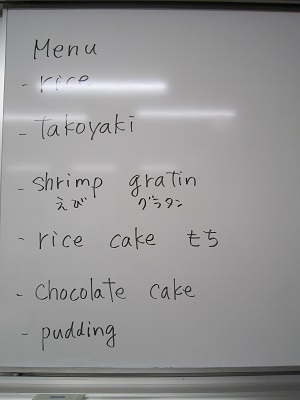 Menu
- rice
- takoyaki
- shrimp gratin
えび グラタン
- rice cake もち
- chocolate cake
- pudding